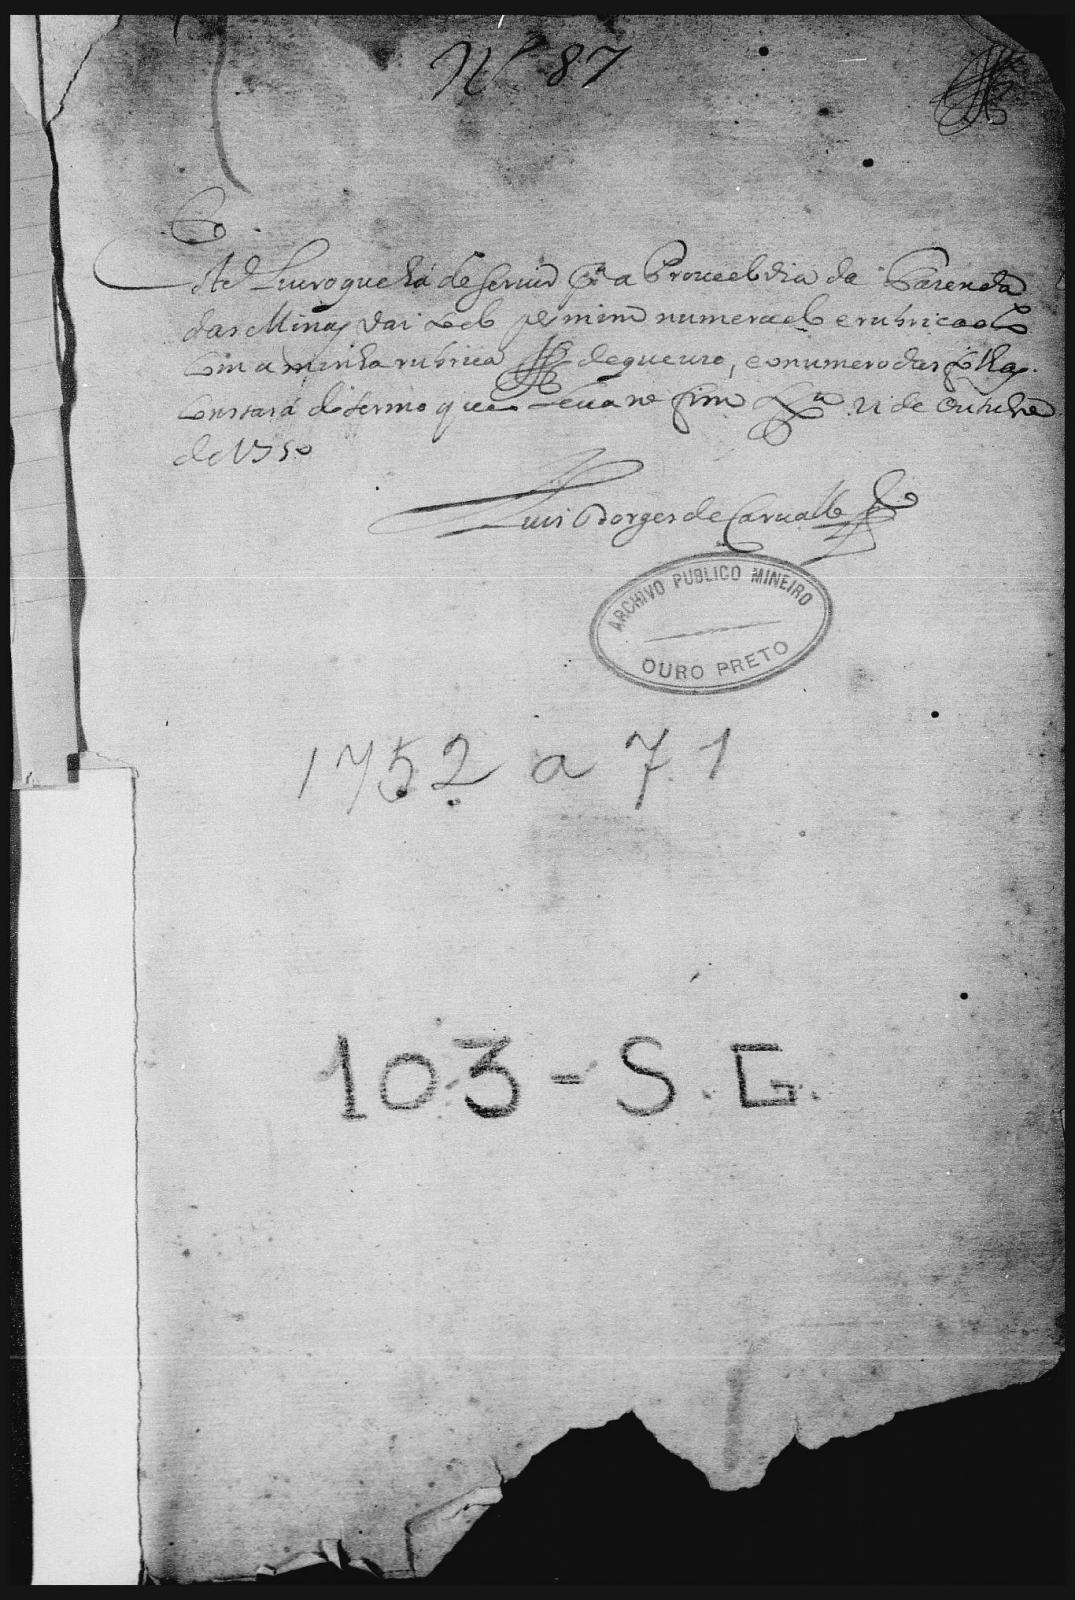 Nº 87
Este Livro que há de servir pª a Provedoria da Fazenda
das Minas vai todo por mim numerado e rubricado
com a minha rubrica de que uzo, e o numero das folhas
constará do termo que leva no fim Lxª 21 de Outubro
de 1750
Luis Borges de Carvalho
ARCHIVO PUBLICO MINEIRO
OURO PRETO
1752 a 71
103 - S. G.